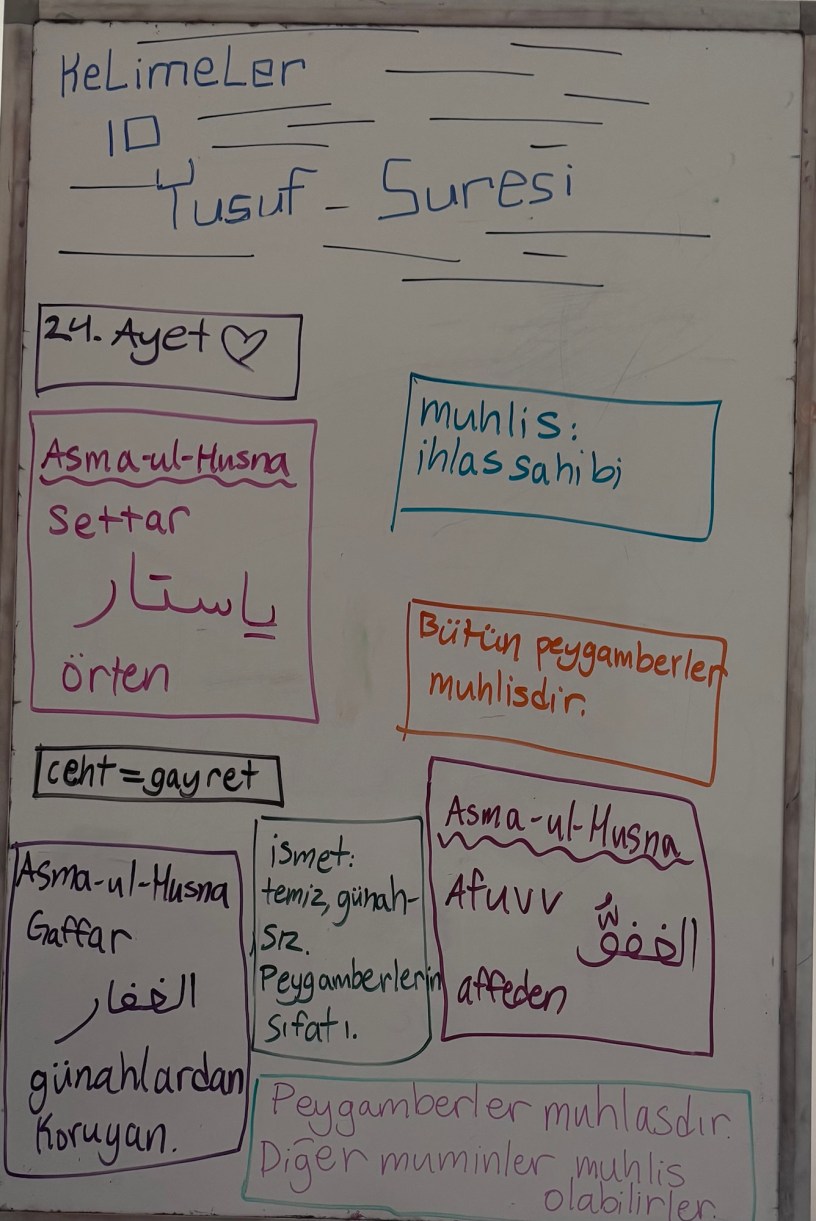 KeLimeLer
10
Yusuf - Suresi
24. Ayet ♡
Asma-ul-Husna
Settar
ياستار
örten
muhlis:
ihlas sahibi
Bütün peygamberler
muhlisdir.
ceht = gayret
Asma-ul-Husna
Gaffar
الغفار
günahlardan
Koruyan.
ismet:
temiz, günah-
sız.
Peygamberlerin
sıfatı.
Asma-ul-Husna
Afuvv
affeden
Peygamberler muhlasdır.
Diğer muminler muhlis
olabilirler.